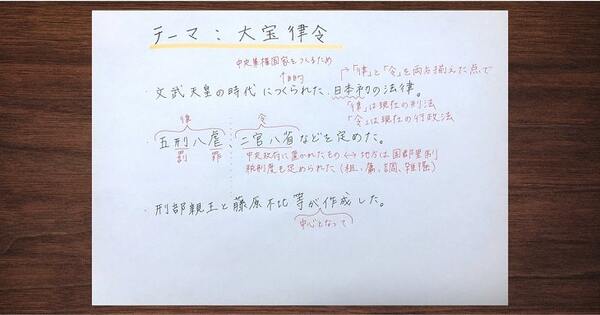 テーマ：大宝律令
中央集権国家をつくるため
↑目的
↗「律」と「令」を両方揃えた点で
・文武天皇の時代につくられた、日本初の法律。
「律」は現在の刑法
「令」は現在の行政法
律 令
五刑八虐、二官八省などを定めた。
罰 罪
中央政府に置かれたもの ↔ 地方は国郡里制
税制度も定められた（租、庸、調、雑徭）
・刑部親王と藤原不比等が作成した。
中心となって